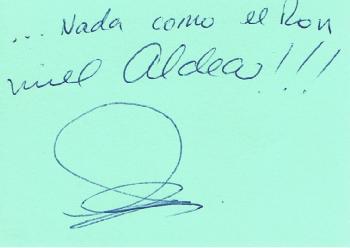 ... Nada como el Ron
miel Aldea!!!